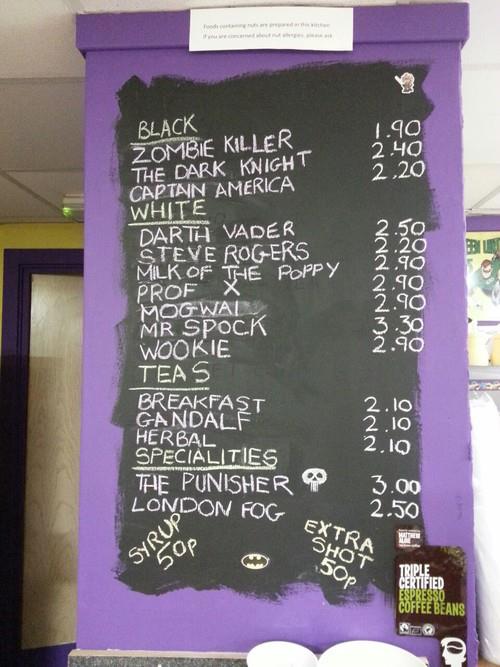 Foods containing nuts are prepared in this kitchen
If you are concerned about nut allergies, please ask
BLACK
ZOMBIE KILLER 1.90
THE DARK KNIGHT 2.40
CAPTAIN AMERICA 2.20
WHITE
DARTH VADER 2.50
STEVE ROGERS 2.20
MILK OF THE POPPY 2.90
PROF X 2.90
MOGWAI 2.90
MR SPOCK 3.30
WOOKIE 2.90
TEAS
BREAKFAST 2.10
GANDALF 2.10
HERBAL 2.10
SPECIALITIES
THE PUNISHER 3.00
LONDON FOG 2.50
SYRUP 50P
EXTRA SHOT 50p
MATTHEW ALGIE
TRIPLE
CERTIFIED
ESPRESSO
COFFEE BEANS